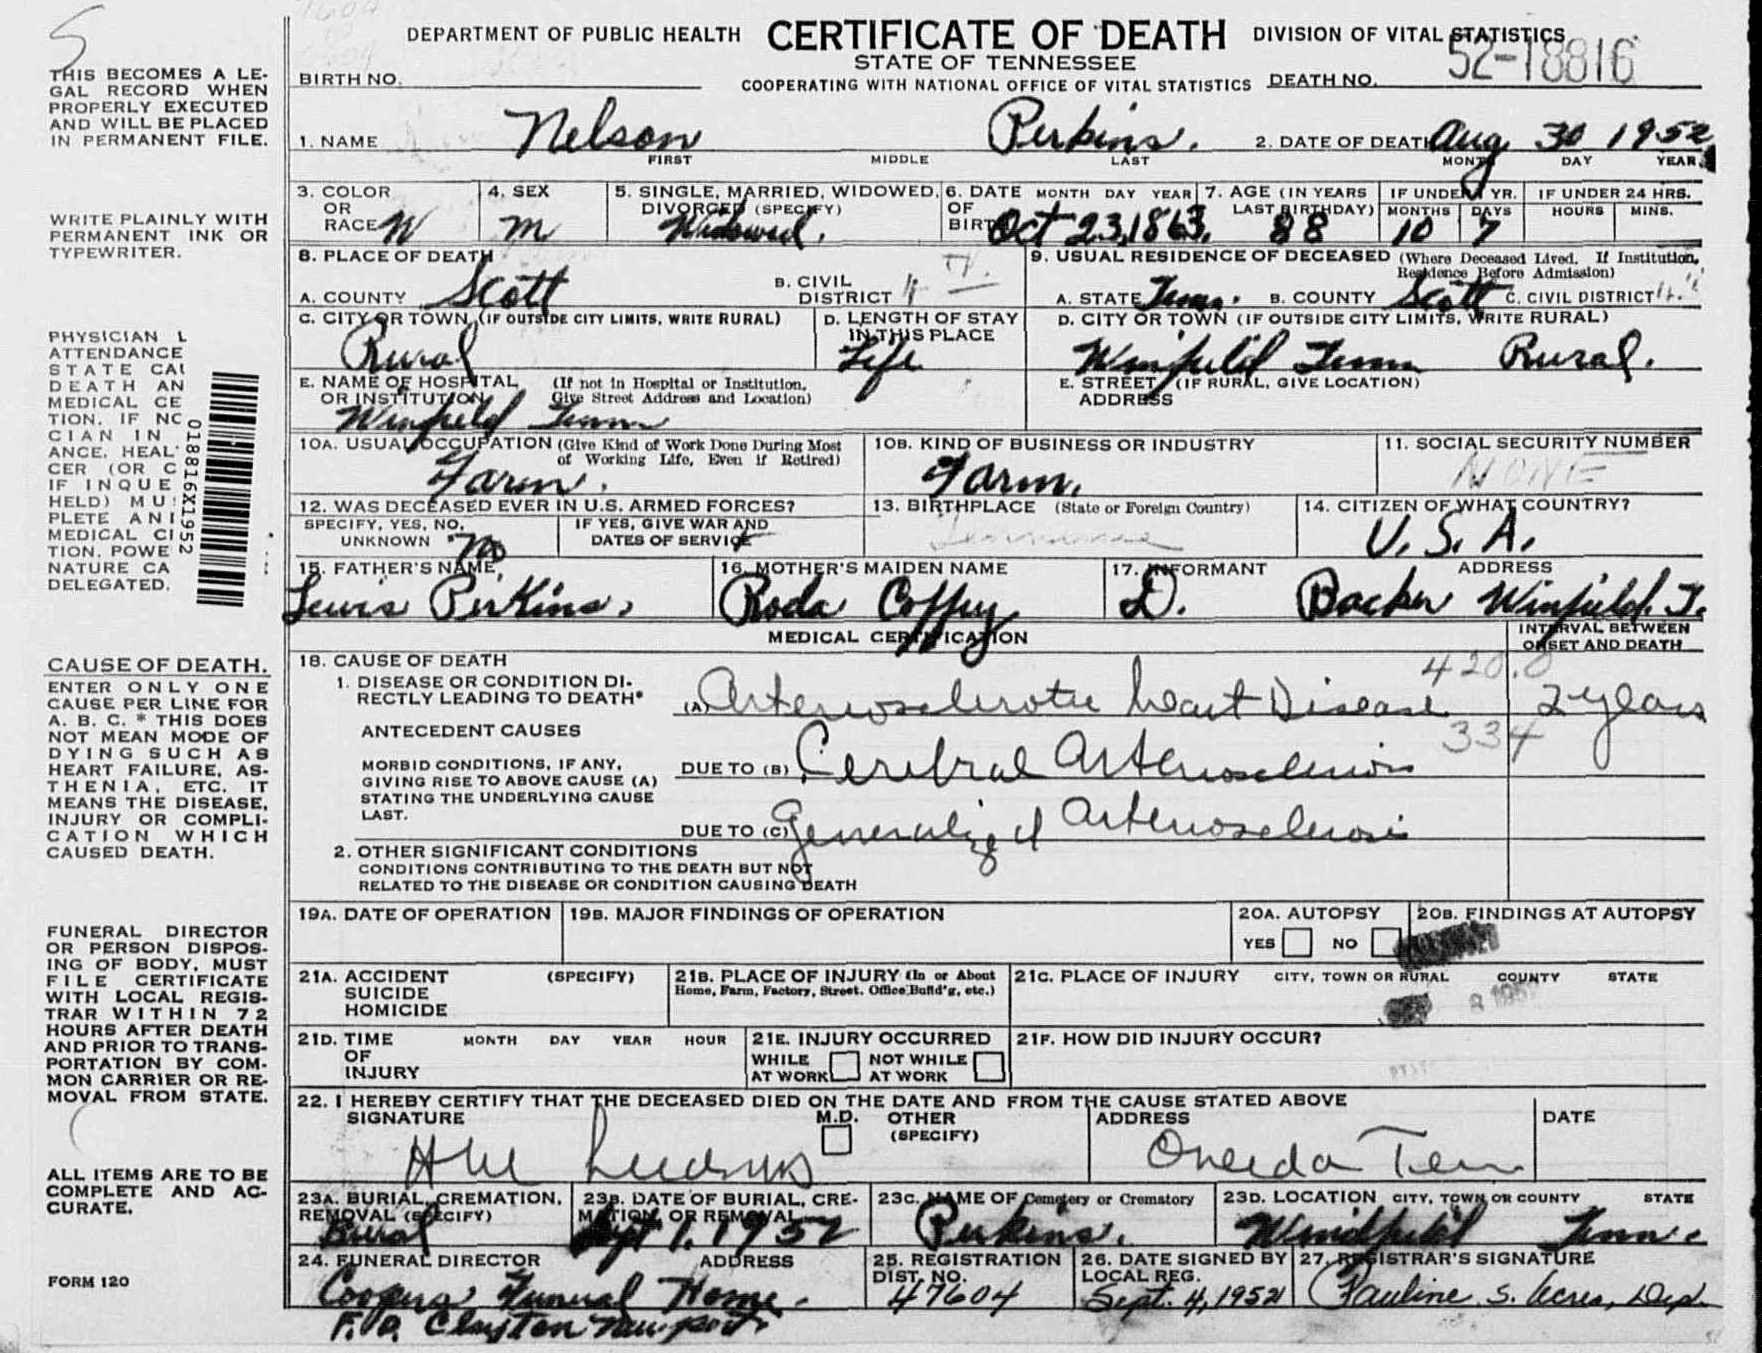 DEPARTMENT OF PUBLIC HEALTH CERTIFICATE OF DEATH DIVISION OF VITAL STATISTICS
STATE OF TENNESSEE
BIRTH NO. COOPERATING WITH NATIONAL OFFICE OF VITAL STATISTICS DEATH NO. 52-18816
1. NAME Nelson Perkins. 2. DATE OF DEATH Aug 30 1952
FIRST MIDDLE LAST MONTH DAY YEAR
3. COLOR OR RACE W
4. SEX M
5. SINGLE, MARRIED, WIDOWED, DIVORCED (SPECIFY) Widowed.
6. DATE OF BIRTH MONTH DAY YEAR Oct 23, 1863.
7. AGE (IN YEARS LAST BIRTHDAY) 88
IF UNDER 1 YR. MONTHS 10 DAYS 7
IF UNDER 24 HRS. HOURS MINS.
8. PLACE OF DEATH
A. COUNTY Scott
B. CIVIL DISTRICT 4
9. USUAL RESIDENCE OF DECEASED (Where Deceased Lived. If Institution, Residence Before Admission)
A. STATE Tenn. B. COUNTY Scott C. CIVIL DISTRICT
C. CITY OR TOWN (IF OUTSIDE CITY LIMITS, WRITE RURAL)
Rural
D. LENGTH OF STAY IN THIS PLACE
Life
D. CITY OR TOWN (IF OUTSIDE CITY LIMITS, WRITE RURAL)
Winfield Tenn Rural.
E. NAME OF HOSPITAL OR INSTITUTION (If not in Hospital or Institution, Give Street Address and Location)
Winfield Tenn
E. STREET ADDRESS (IF RURAL, GIVE LOCATION)
10A. USUAL OCCUPATION (Give Kind of Work Done During Most of Working Life, Even if Retired)
Farm.
10B. KIND OF BUSINESS OR INDUSTRY
Farm.
11. SOCIAL SECURITY NUMBER
NONE
12. WAS DECEASED EVER IN U.S. ARMED FORCES?
SPECIFY, YES, NO, UNKNOWN No
IF YES, GIVE WAR AND DATES OF SERVICE
13. BIRTHPLACE (State or Foreign Country)
Tennessee
14. CITIZEN OF WHAT COUNTRY?
U.S.A.
15. FATHER'S NAME
Lewis Perkins.
16. MOTHER'S MAIDEN NAME
Roda Coffey
17. INFORMANT ADDRESS
D. Backer Winfield. T.
MEDICAL CERTIFICATION
INTERVAL BETWEEN ONSET AND DEATH
18. CAUSE OF DEATH
1. DISEASE OR CONDITION DIRECTLY LEADING TO DEATH*
420.0
(A) Arteriosclerotic heart Disease 2 years
ANTECEDENT CAUSES
334
MORBID CONDITIONS, IF ANY, GIVING RISE TO ABOVE CAUSE (A) STATING THE UNDERLYING CAUSE LAST.
DUE TO (B) Cerebral Arteriosclerosis
DUE TO (C) Generalized Arteriosclerosis
2. OTHER SIGNIFICANT CONDITIONS
CONDITIONS CONTRIBUTING TO THE DEATH BUT NOT
RELATED TO THE DISEASE OR CONDITION CAUSING DEATH
19A. DATE OF OPERATION
19B. MAJOR FINDINGS OF OPERATION
20A. AUTOPSY
YES NO
20B. FINDINGS AT AUTOPSY
21A. ACCIDENT (SPECIFY)
SUICIDE
HOMICIDE
21B. PLACE OF INJURY (In or About Home, Farm, Factory, Street, Office Build'g, etc.)
21C. PLACE OF INJURY CITY, TOWN OR RURAL COUNTY STATE
21D. TIME OF INJURY MONTH DAY YEAR HOUR
21E. INJURY OCCURRED
WHILE AT WORK NOT WHILE AT WORK
21F. HOW DID INJURY OCCUR?
22. I HEREBY CERTIFY THAT THE DECEASED DIED ON THE DATE AND FROM THE CAUSE STATED ABOVE
SIGNATURE M.D. OTHER (SPECIFY) ADDRESS DATE
Oneida Tenn
23A. BURIAL, CREMATION, REMOVAL (SPECIFY)
Burial
23B. DATE OF BURIAL, CREMATION, OR REMOVAL
Sept 1, 1952
23C. NAME OF Cemetery or Crematory
Perkins.
23D. LOCATION CITY, TOWN OR COUNTY STATE
Windfield Tenn.
24. FUNERAL DIRECTOR ADDRESS
Coopers Funeral Home.
F.D. Clayton
25. REGISTRATION DIST. NO.
47604
26. DATE SIGNED BY LOCAL REG.
Sept. 4, 1952
27. REGISTRAR'S SIGNATURE
Pauline S. Acres, Dep.
THIS BECOMES A LE-
GAL RECORD WHEN
PROPERLY EXECUTED
AND WILL BE PLACED
IN PERMANENT FILE.
WRITE PLAINLY WITH
PERMANENT INK OR
TYPEWRITER.
PHYSICIAN L
ATTENDANCE
STATE CAU
DEATH AN
MEDICAL CE
TION. IF NO
CIAN IN
ANCE, HEAL
CER (OR C
IF INQUE
HELD) MU
PLETE AN
MEDICAL C
TION. POWE
NATURE CA
DELEGATED.
018816X1952
CAUSE OF DEATH.
ENTER ONLY ONE
CAUSE PER LINE FOR
A. B. C. * THIS DOES
NOT MEAN MODE OF
DYING SUCH AS
HEART FAILURE, AS-
THENIA, ETC. IT
MEANS THE DISEASE,
INJURY OR COMPLI-
CATION WHICH
CAUSED DEATH.
FUNERAL DIRECTOR
OR PERSON DISPOS-
ING OF BODY, MUST
FILE CERTIFICATE
WITH LOCAL REGIS-
TRAR WITHIN 72
HOURS AFTER DEATH
AND PRIOR TO TRANS-
PORTATION BY COM-
MON CARRIER OR RE-
MOVAL FROM STATE.
ALL ITEMS ARE TO BE
COMPLETE AND AC-
CURATE.
FORM 120